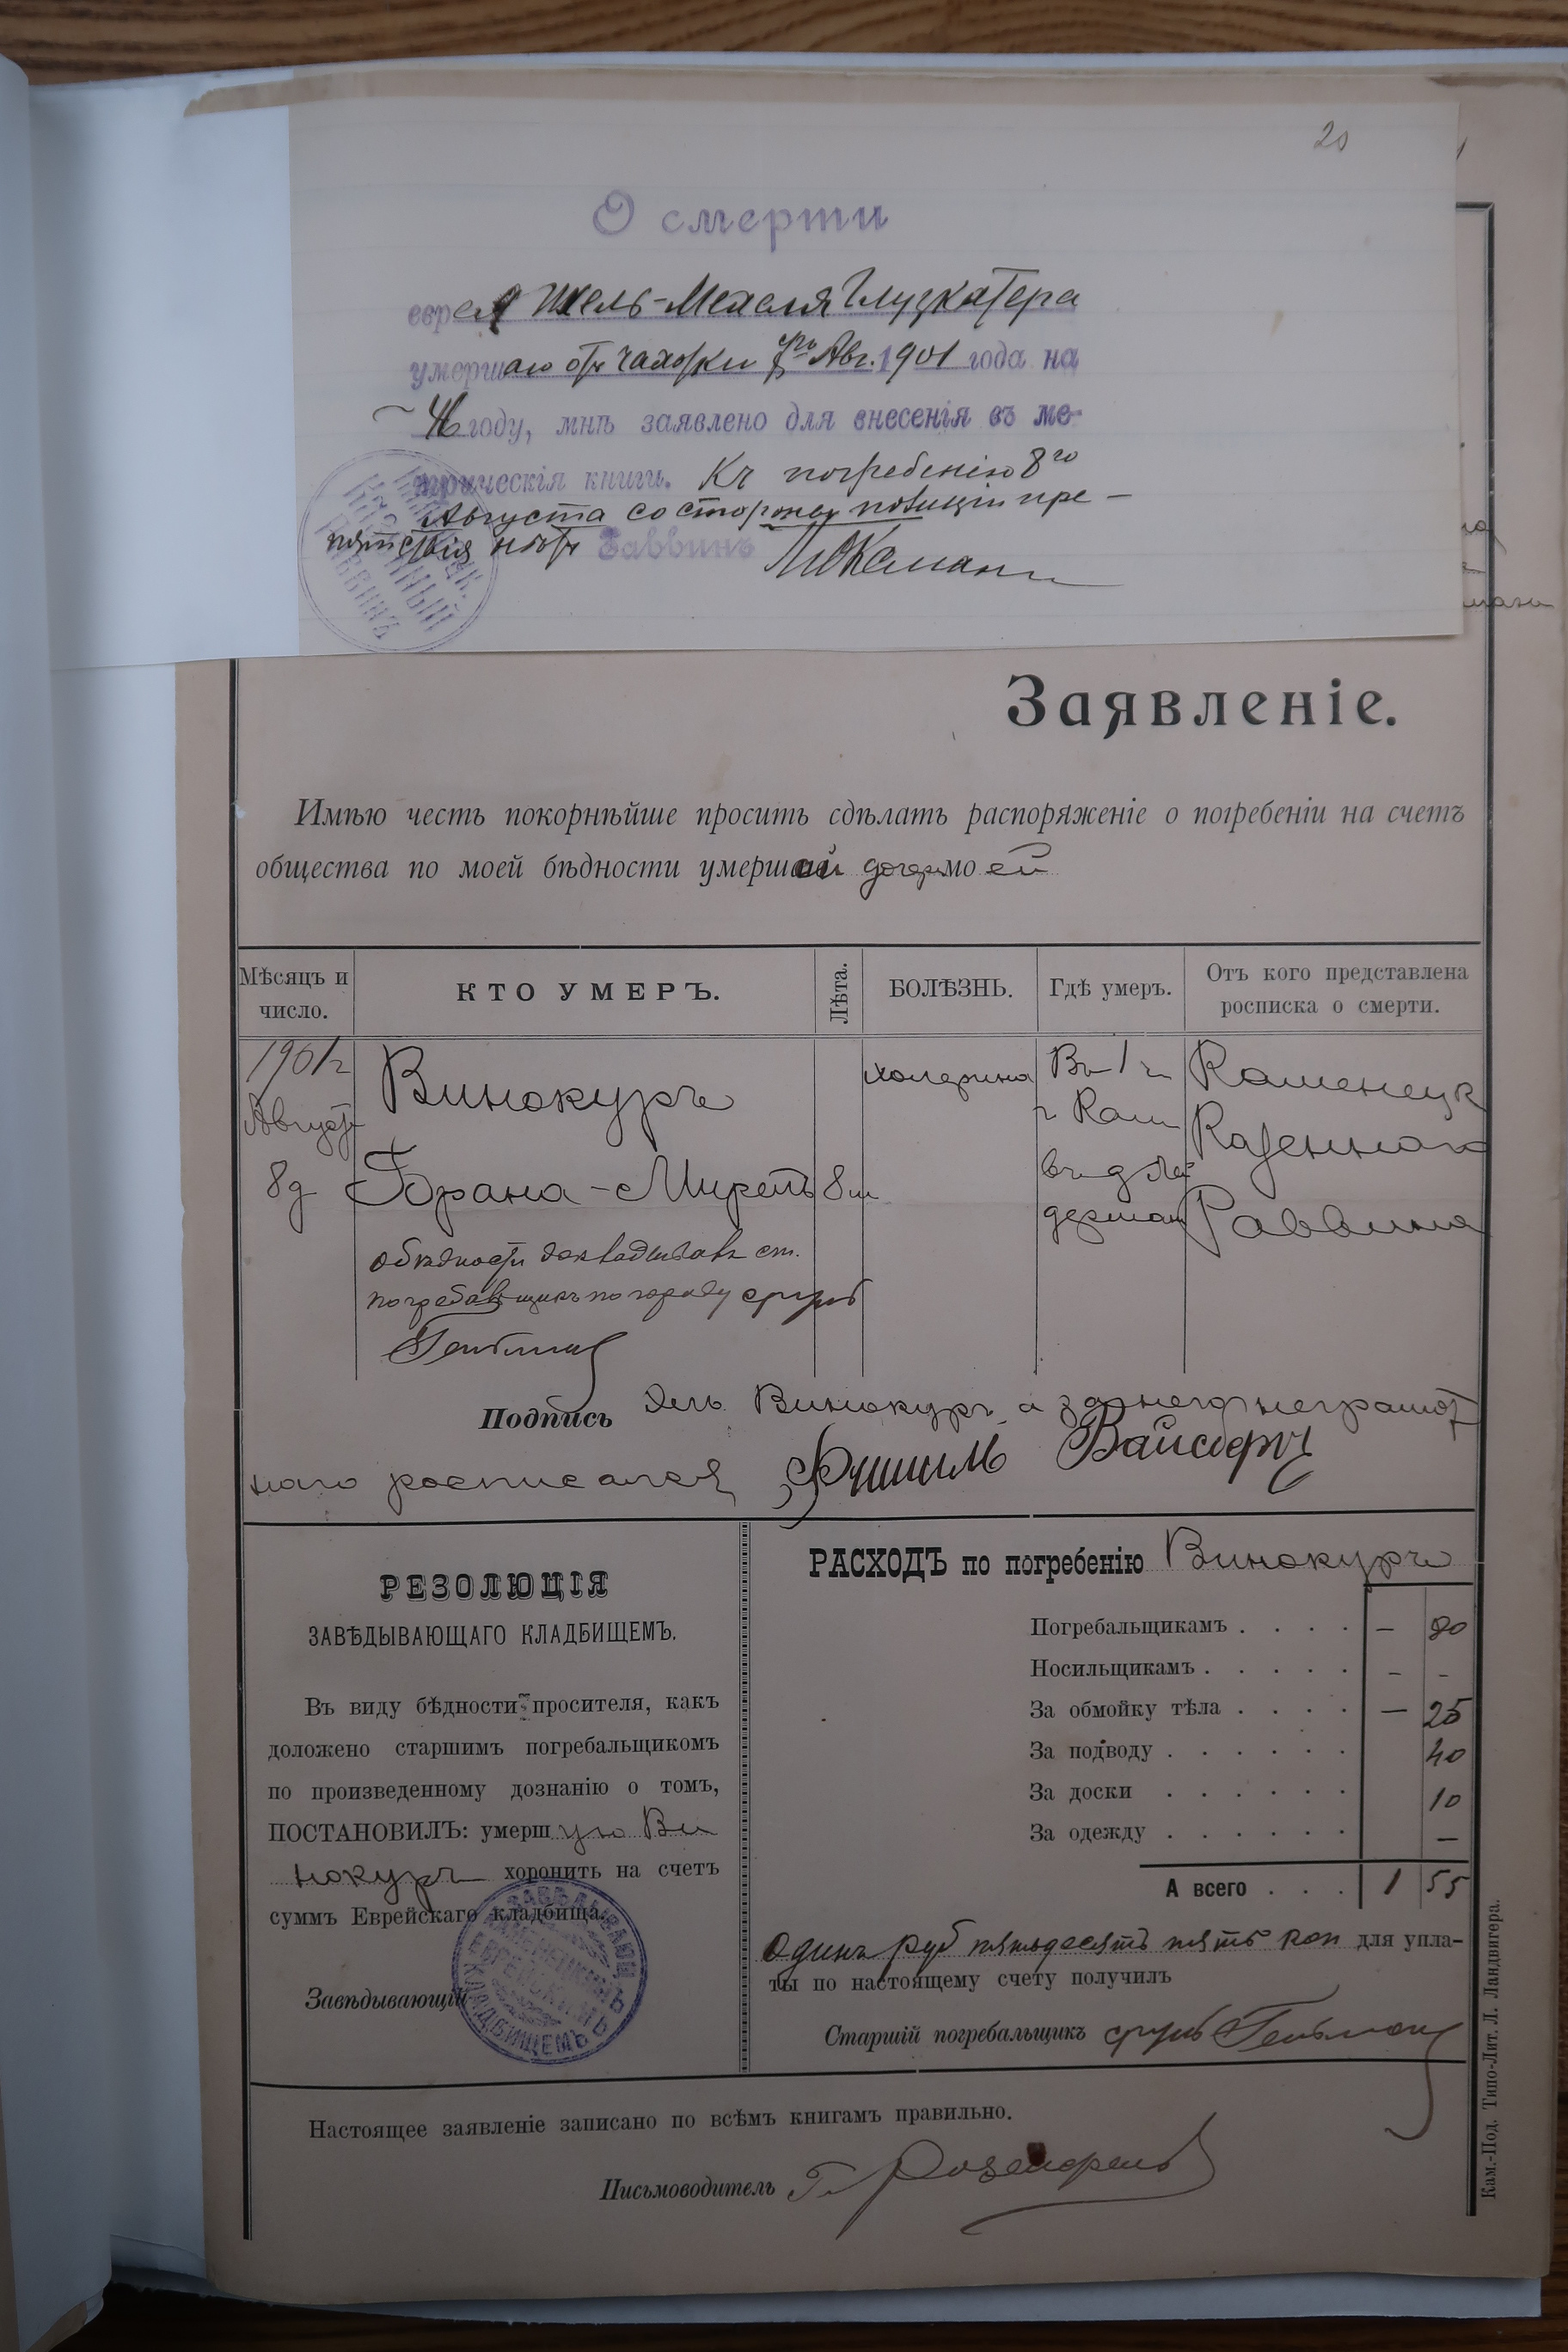 20
О смерти
еврея Шель-Мехеля Глузкатера
умершаго отъ чахотки Авг. 1901 года на
году, мнѣ заявлено для внесенія въ ме-
трическія книги. Къ погребенію 8го
Августа со стороны полиціи пре-
пятствія нѣтъ Раввинъ
Заявленіе.
Имѣю честь покорнѣйше просить сдѣлать распоряженіе о погребеніи на счетъ
общества по моей бѣдности умершей дочери моей
Мѣсяцъ и число.
КТО УМЕРЪ.
Лѣта.
БОЛѢЗНЬ.
Гдѣ умеръ.
Отъ кого представлена росписка о смерти.
1901 г
Августа
8 д
Винокуръ
Брана-Миремъ
8 м
холерина
Въ 1 ч
г Кам
въ д
Каменецк
Казеннаго
Раввина
о бѣдности докладывалъ ст.
погребальщикъ по городу Сруль
Гельман
Подпись Винокуръ а за него неграмот
наго росписался Фишиль Вайсбергъ
РЕЗОЛЮЦІЯ
ЗАВѢДЫВАЮЩАГО КЛАДБИЩЕМЪ.
Въ виду бѣдности просителя, какъ
доложено старшимъ погребальщикомъ
по произведенному дознанію о томъ,
ПОСТАНОВИЛЪ: умершую Ви
нокуръ хоронить на счетъ
суммъ Еврейскаго кладбища.
Завѣдывающій
ЗАВѢДЫВАЮЩ
КАМЕНЕЦКИМЪ
ЕВРЕЙСКИМЪ
КЛАДБИЩЕМЪ
РАСХОДЪ по погребенію Винокуръ
Погребальщикамъ . . . . — 80
Носильщикамъ . . . . . - -
За обмойку тѣла . . . . — 25
За подводу . . . . . . 40
За доски . . . . . . 10
За одежду . . . . . . —
А всего . . . 1 55
Одинъ руб пятьдесятъ пять коп для упла-
ты по настоящему счету получилъ
Старшій погребальщикъ Сруль Гельман
Настоящее заявленіе записано по всѣмъ книгамъ правильно.
Письмоводитель Г. Розенфельд
Кам.-Под. Типо-Лит. Л. Ландвигера.